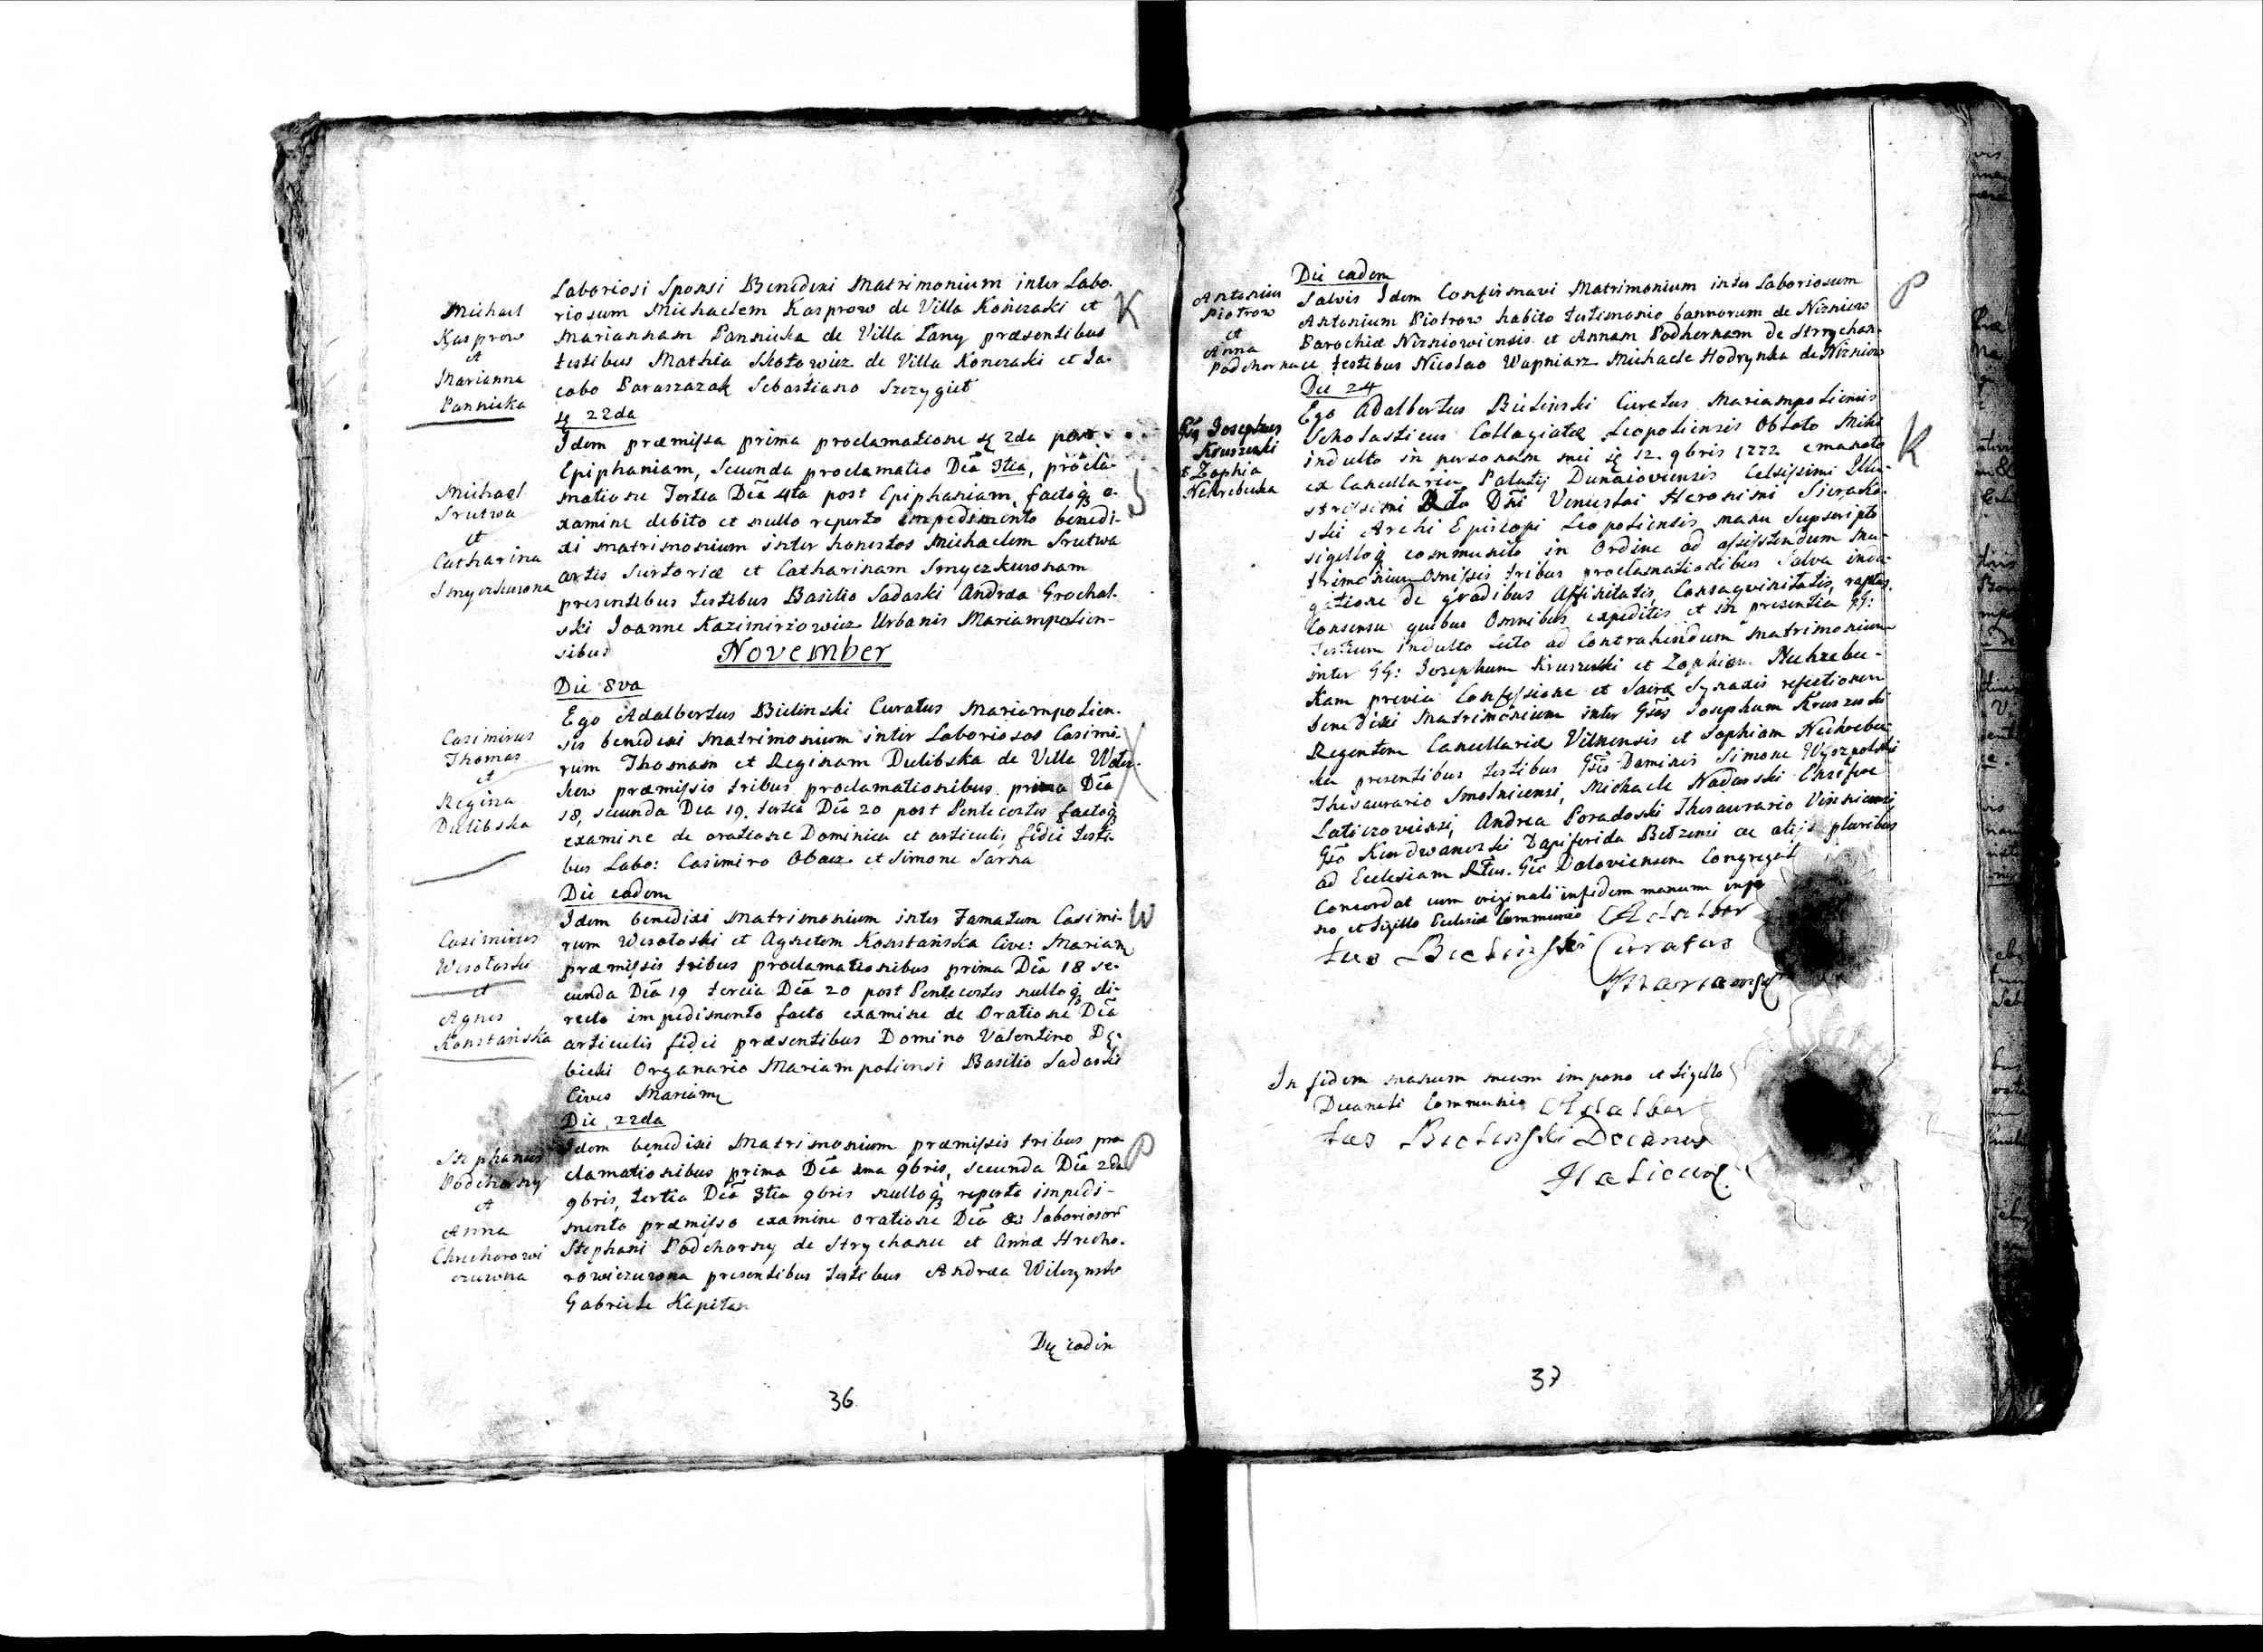 Laboriosi Sponsi Benedixi Matrimonium inter Labo-
riosum Michaelem Kasprow de Villa Kończaki et
Mariannam Pannicka de Villa Łany præsentibus
testibus Mathia Skotowicz de Villa Konczaki et Ja-
cobo Baraszazak Sebastiano Szczygieł
Michael
Kasprow
et
Marianna
Pannicka
K
22da
Idem præmissa prima proclamatione 2da post
Epiphaniam, secunda proclamatio Dca 3tia, procla-
matione Tertia Dca 4ta post Epiphaniam, factoq e-
xamine debito et nullo reperto impedimento benedi-
xi matrimonium inter honestos Michaelem Srutwa
artis Sutoriæ et Catharinam Smyczkuwonam
presentibus testibus Basilio Sadoski Andrea Grochal-
ski Joanne Kazimirzowicz Urbanis Mariampolien-
sibus
Michael
Srutwa
et
Catharina
Smyczkuwona
S
November
Die 8va
Ego Adalbertus Bielinski Curatus Mariampolien-
sis benedixi matrimonium inter Laboriosos Casimi-
rum Thomam et Reginam Dulibska de Villa Wodni-
kow præmissis tribus proclamationibus prima Dca
18, secunda Dca 19, tertia Dca 20 post Pentecostes factoq
examine de oratione Dominica et articulis fidei testi-
bus Labo: Casimiro Obacz et Simone Sarna
Casimirus
Thomas
et
Regina
Dulibska
Die eadem
Idem benedixi matrimonium inter Famatum Casimi-
rum Wesołoski et Agnetem Konstańska Cive: Mariam
præmissis tribus proclamationibus prima Dca 18 se-
cunda Dca 19 tercia Dca 20 post Pentecostes nulloq di-
recto impedimento facto examine de Oratione Dca
articulis fidei præsentibus Domino Valentino Dę-
bicki Organario Mariampoliensi Basilio Sadoski
Cives Mariam
Casimirus
Wesołoski
et
Agnes
Konstańska
W
Die 22da
Idem benedixi Matrimonium præmissis tribus pro
clamationibus prima Dca 1ma 9bris, secunda Dca 2da
9bris, tertia Dca 3tia 9bris nulloq reperto impedi-
mento præmisso examine oratione Dca laboriosor
Stephani Podchorny de Strychance et Annæ Hrecho-
rowiczuwona presentibus testibus Andrea Wilczynski
Gabriele Kapitan
Stephanus
Podchorny
et
Anna
Chrechorowi
czuwna
P
Die eadem
36
Die eadem
Salvis Idem Confirmavi Matrimonium inter Laboriosum
Antonium Piotrow habito testimonio bannorum de Nizniow
Parochiæ Nizniowiensis et Annam Podhornam de Strychan-
ce testibus Nicolao Wapniarz Michaele Hodrynka de Nizniow
Antonius
Piotrow
et
Anna
Podchorna
P
Die 24
Ego Adalbertus Bielinski Curatus Mariampoliensis
Scholasticus Collegiatæ Leopoliensis Oblato Mihi
indulto in personam mei 12. 9bris 1772 emanato
ex Cancellaria Palatij Dunaioviensis Celsissimi Illu-
strissimi Dni Venceslai Heronimi Sierako-
ski Archi Episcopi Leopoliensis manu Supscripto
sigilloq communito in Ordine ad assistendum ma-
trimonium Omissis tribus proclamationibus Salva inda-
gatione de gradibus Affinitatis, Consaqvinitatis, raptus.
Consensu quibus Omnibus expeditis et in presentia GG:
Testium indulto lecto ad Contrahendum matrimonium
inter GG: Josephum Kruszeski et Zophiam Niehrebec-
kam previa Confessione et Sacræ Synaxis refectionem
benedixi Matrimonium inter Gsos Josephum Kruszeski
Regentem Cancellariæ Vilnensis et Sophiam Niehrebec-
ka presentibus testibus Gsis Dominis Simone Wyszpolski
Thesaurario Smolnicensi, Michaele Nadarski Ensifero
Laticzoviensi, Andrea Poradoski Thesaurario Vinnicensi
Gso Kurdwanoski Dapiferida Bełzensi ac alijs pluribus
ad Ecclesiam Congregat
Concordat cum originali in fidem manum impo
no et Sigillo Ecclesiæ Communio Adalber
tus Bielinski Curatus
Mariamp
Gsus Josephus
Kruszeski
et Zophia
Nehrebecka
K
In fidem manum meam impono et Sigillo
Decanati Communio Adalber
tus Bielinski Decanus
Halicien
37